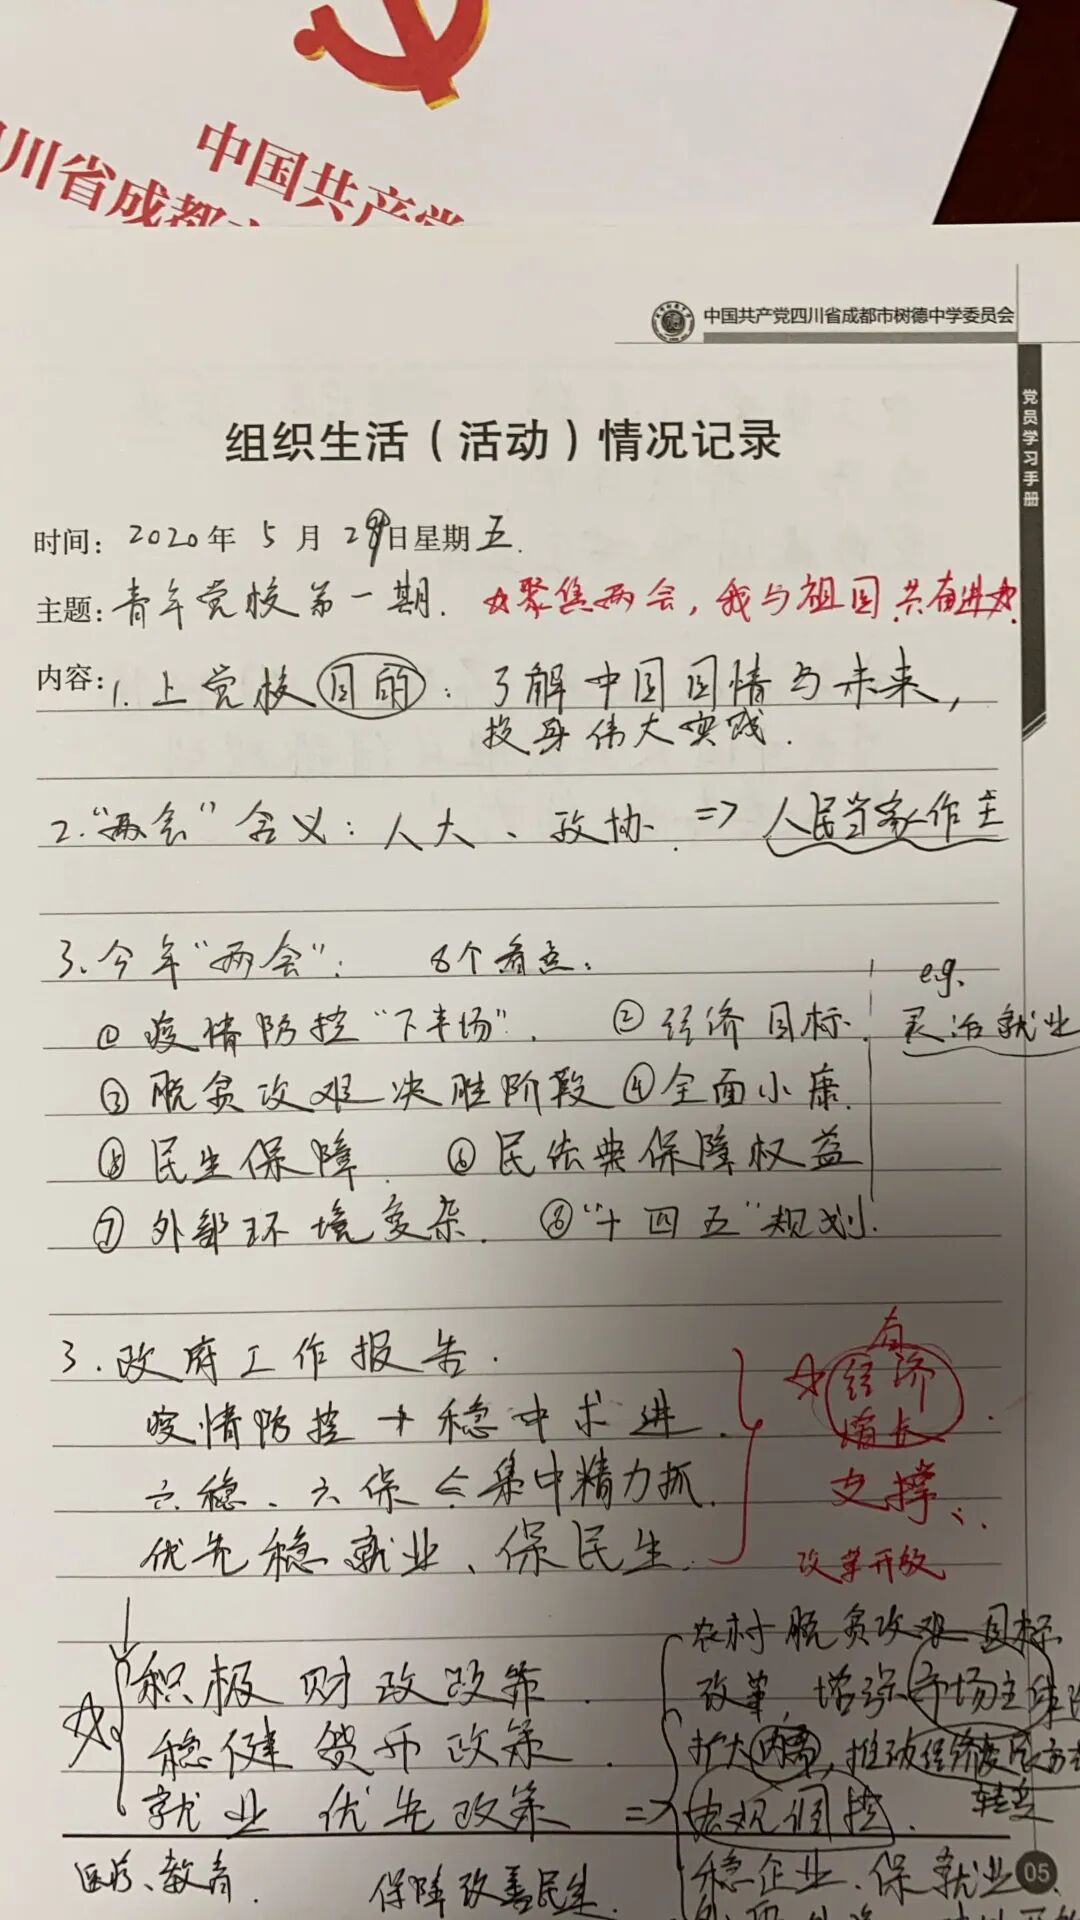 中国共产党
川省成都
中国共产党四川省成都市树德中学委员会
党员学习手册
组织生活（活动）情况记录
时间：2020年 5 月 29日星期 五.
主题：青年党校第一期. ☆聚焦两会，我与祖国共奋进☆.
内容：1. 上党校目的：了解中国国情与未来，
投身伟大实践.
2.“两会”含义：人大、政协. => 人民当家作主
3. 今年“两会”： 8个看点：
e.g.
① 疫情防控“下半场”. ② 经济目标. 灵活就业
③ 脱贫攻艰决胜阶段 ④ 全面小康.
⑤ 民生保障. ⑥ 民法典保障权益
⑦ 外部环境复杂. ⑧“十四五”规划.
3. 政府工作报告.
疫情防控 + 稳中求进.
六稳、六保 <= 集中精力抓.
优先稳就业、保民生.
有
☆ 经济
增长
支撑
改革开放
☆ 积极财政政策.
稳健货币政策.
就业优先政策 =>
农村脱贫攻艰目标
改革，增强市场主体
扩大内需，推动经济发展方式
转变
宏观调控.
稳企业、保就业
医疗、教育. 保障改善民生.
05